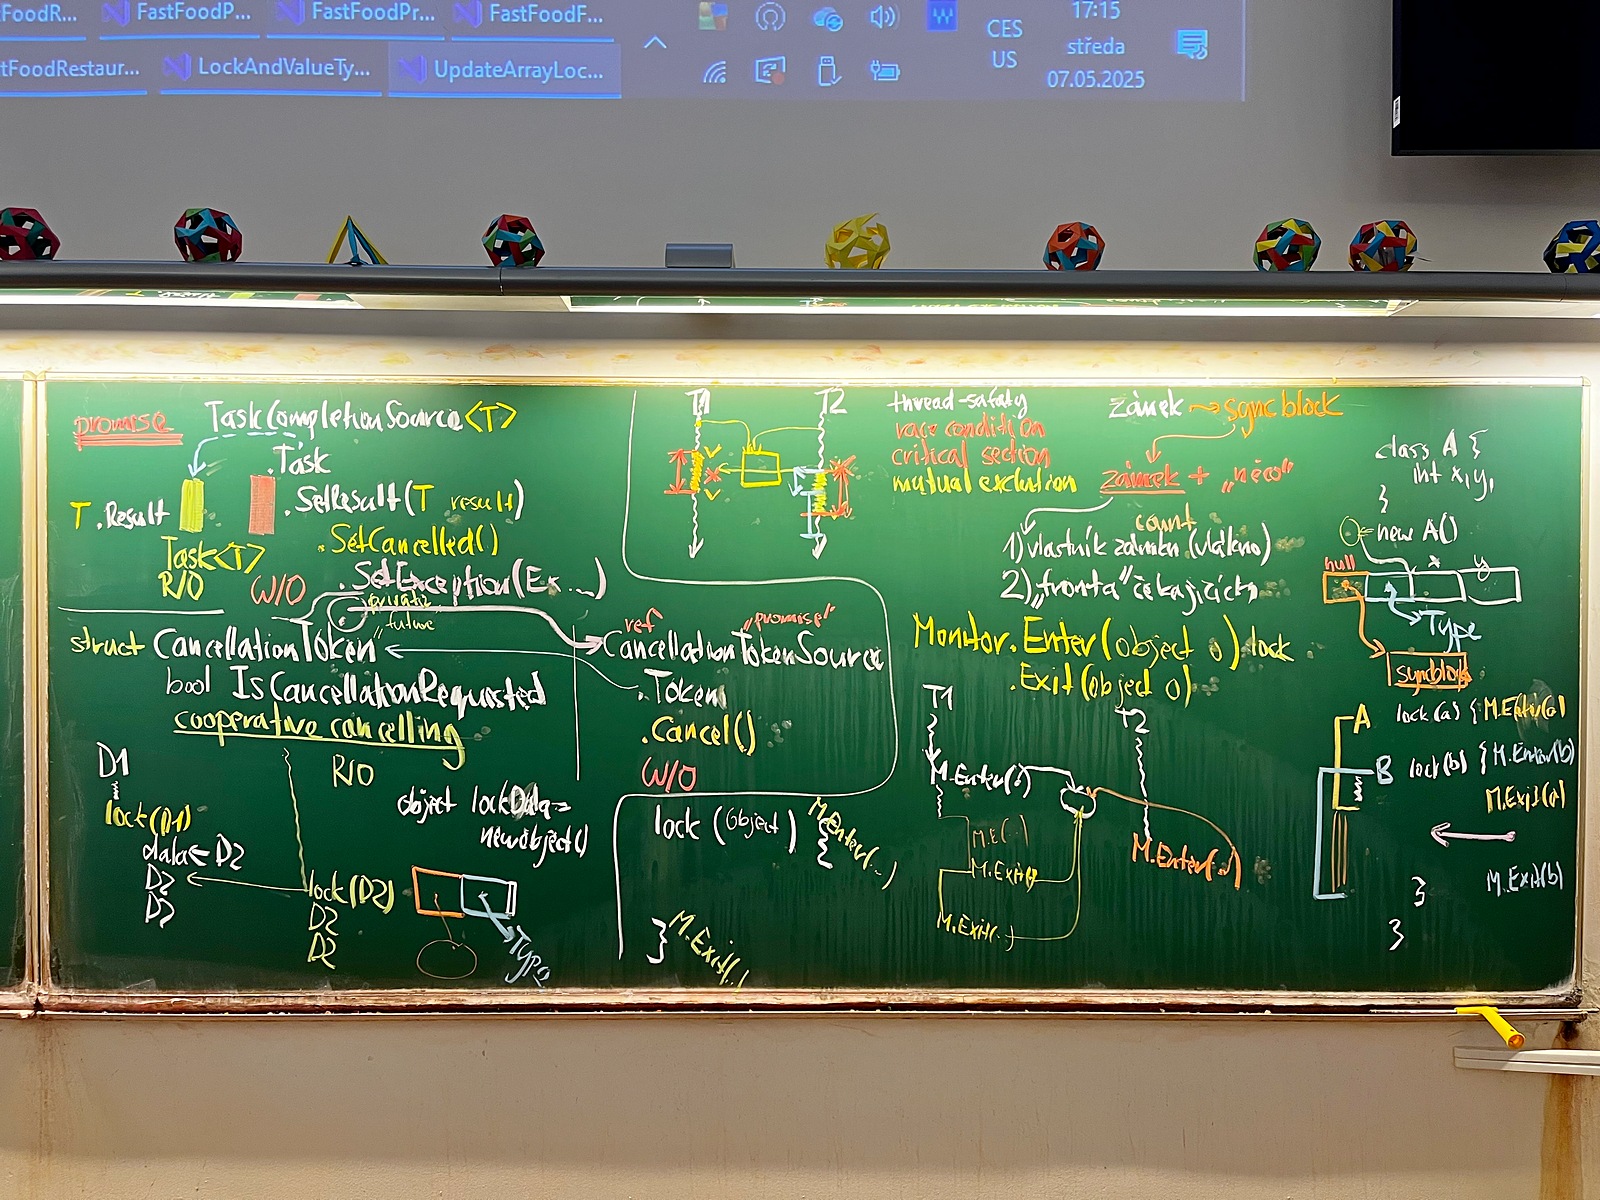 FoodR...
FastFoodP...
FastFoodPr...
FastFoodF...
tFoodRestaur...
LockAndValueTy...
UpdateArrayLoc...
CES
US
17:15
středa
07.05.2025
promise
TaskCompletionSource<T>
.Task
T.Result
.SetResult(T result)
.SetCancelled()
Task<T>
R/O
W/O
.SetException(Ex...)
"future"
struct CancellationToken
bool IsCancellationRequested
cooperative cancelling
R/O
ref
"promise"
CancellationTokenSource
.Token
.Cancel()
W/O
D1
lock(D1)
data← D2
D2
D2
lock(D2)
D2
D2
object lockData =
new object()
Type
lock (object) {
M.Enter(..)
} M.Exit(.)
T1
T2
thread-safaty
race condition
critical section
mutual exclution
zámek → syncblock
zámek + „něco"
count
1) vlastník zámku (vlákno)
2) „fronta" čekajících
Monitor.Enter(object o) lock
.Exit(object o)
T1
T2
M.Enter(.)
M.E(..)
M.Exit()
M.Exit(..)
M.Enter(.)
class A {
int x, y,
}
= new A()
null
x
y
Type
syncblock
A
lock(a) { M.Enter(a)
B
lock(b) { M.Enter(b)
M.Exit(a)
M.Exit(b)
}
}